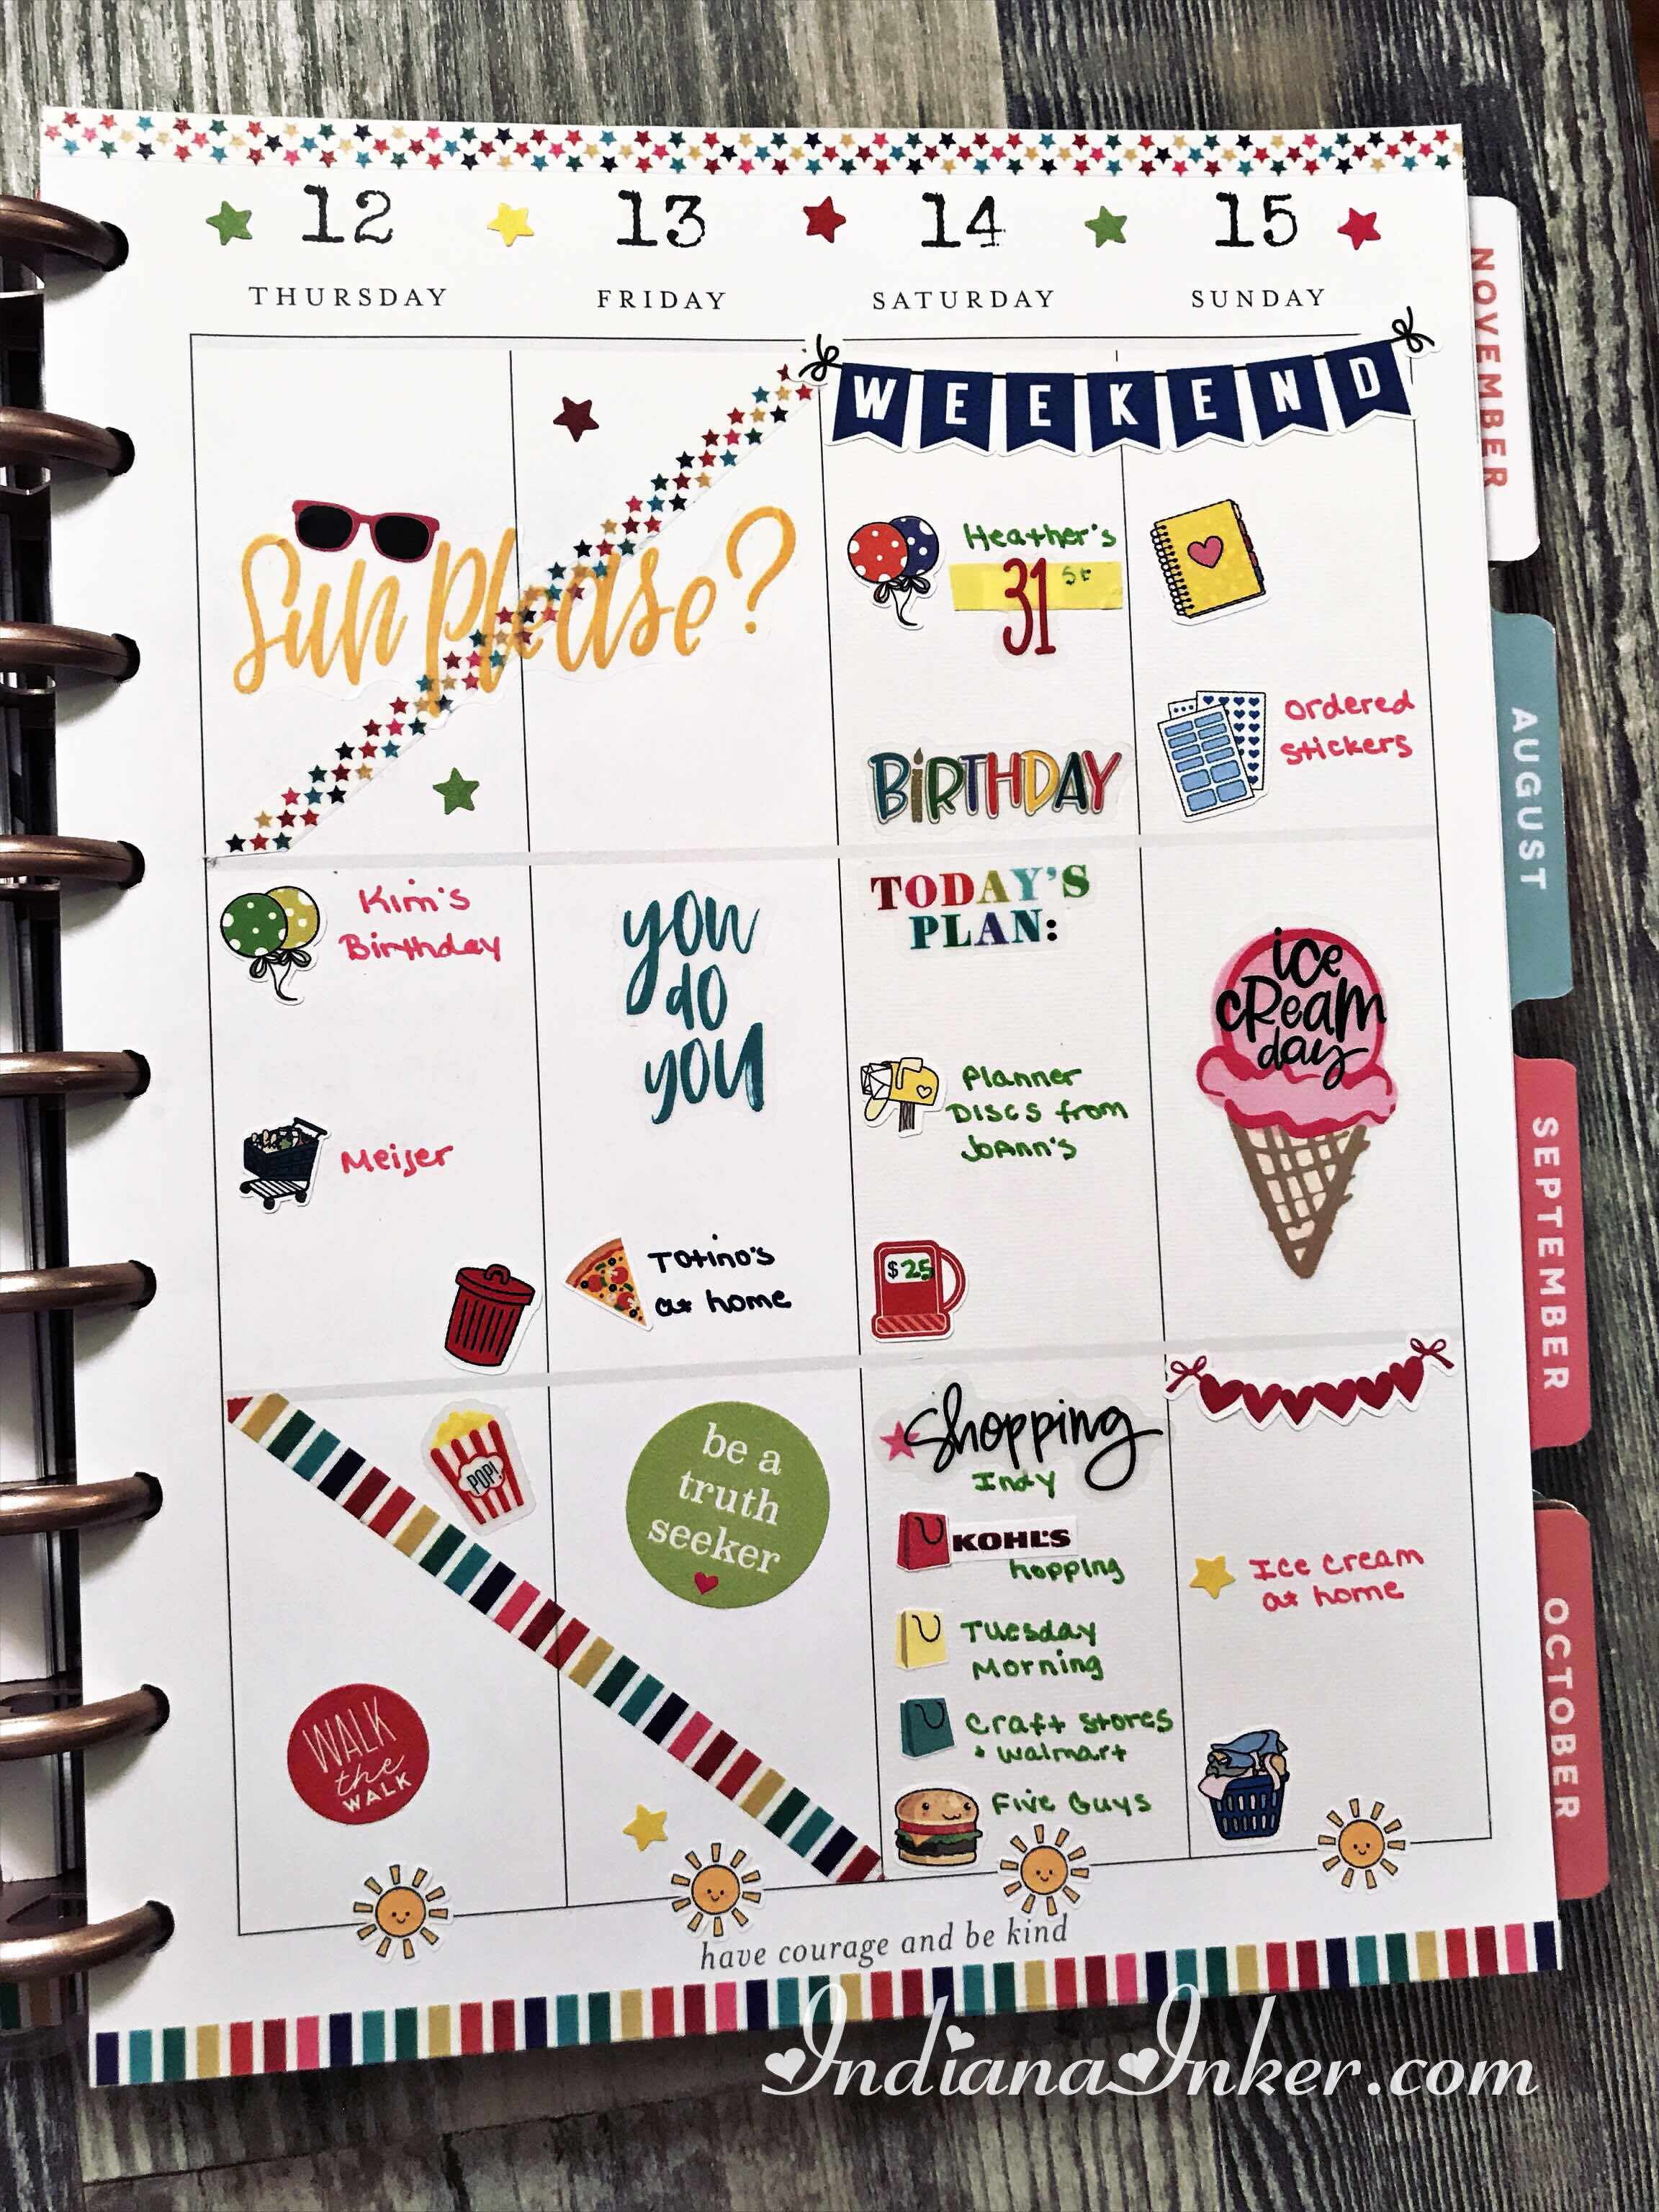 12 13 14 15
THURSDAY FRIDAY SATURDAY SUNDAY
WEEKEND
Sun Please?
Kim's
Birthday
Meijer
WALK
the
WALK
POP!
you
do
you
Totino's
at home
be a
truth
seeker
Heather's
31 st
BIRTHDAY
TODAY'S
PLAN:
Planner
Discs from
JoAnn's
$25
Shopping
Indy
KOHL'S
hopping
Tuesday
Morning
Craft stores
+ walmart
Five Guys
ordered
stickers
ice
cream
day
Ice cream
at home
have courage and be kind
NOVEMBER
AUGUST
SEPTEMBER
OCTOBER
IndianaInker.com